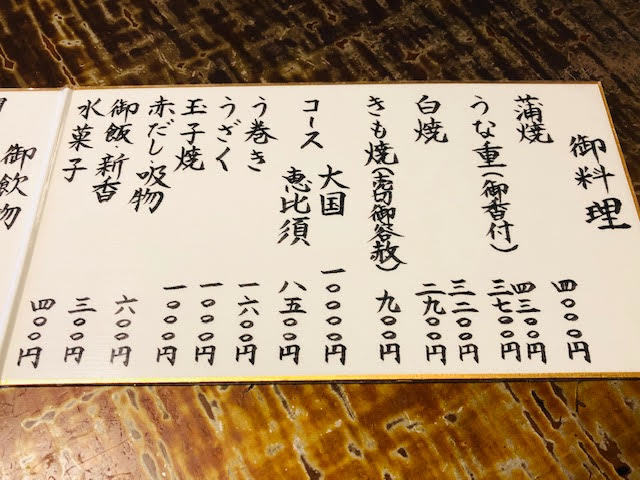 御料理
蒲焼 四〇〇〇円
四三〇〇円
うな重(御香付) 三七〇〇円
三二〇〇円
白焼 二九〇〇円
きも焼(売切御容赦) 九〇〇円
コース 大国 一〇〇〇〇円
恵比須 八五〇〇円
う巻き 一六〇〇円
うざく 一〇〇〇円
玉子焼 一〇〇〇円
赤だし・吸物 六〇〇円
御飯・新香 三〇〇円
水菓子 四〇〇円
御飲物